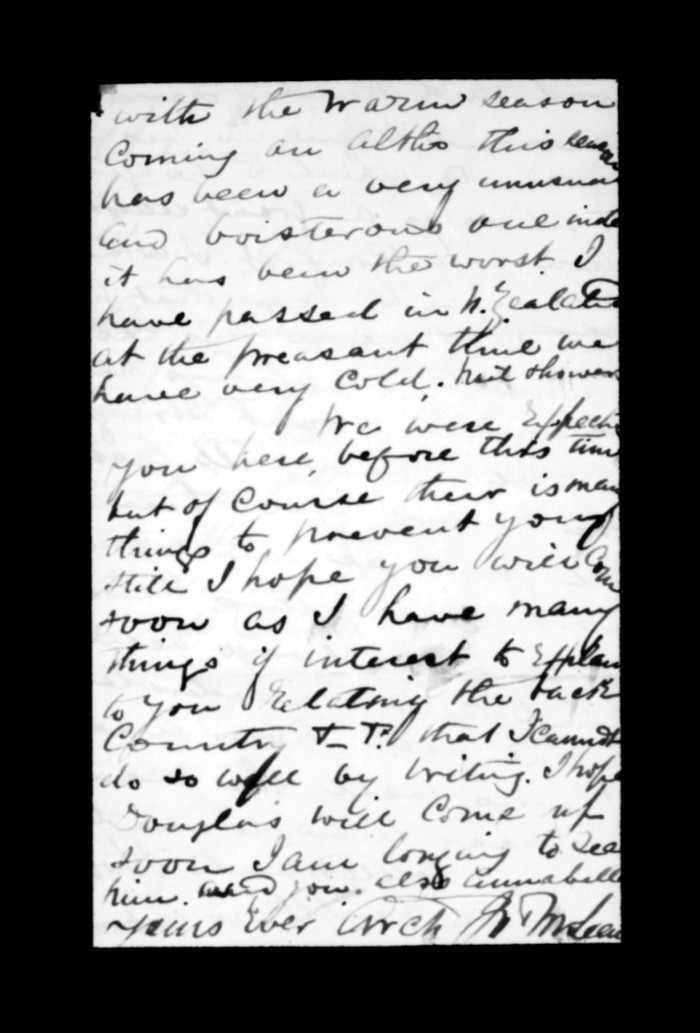 with the warm season
coming on altho this season
has been a very unusual
and boisterous one inde
it has been the worst I
have passed in N. Zealand
at the preasant time we
have very cold, wet showers
We were Expecti
you here, before this time
but of course their is many
things to prevent you
still I hope you will Com
soon as I have many
things of interest to Explain
to you Relating the back
Country that I cannot
do so well by writing. I hope
Douglas will come up
soon I am longing to see
him. and you. also annabella
Yours Ever Arch Jn McLean